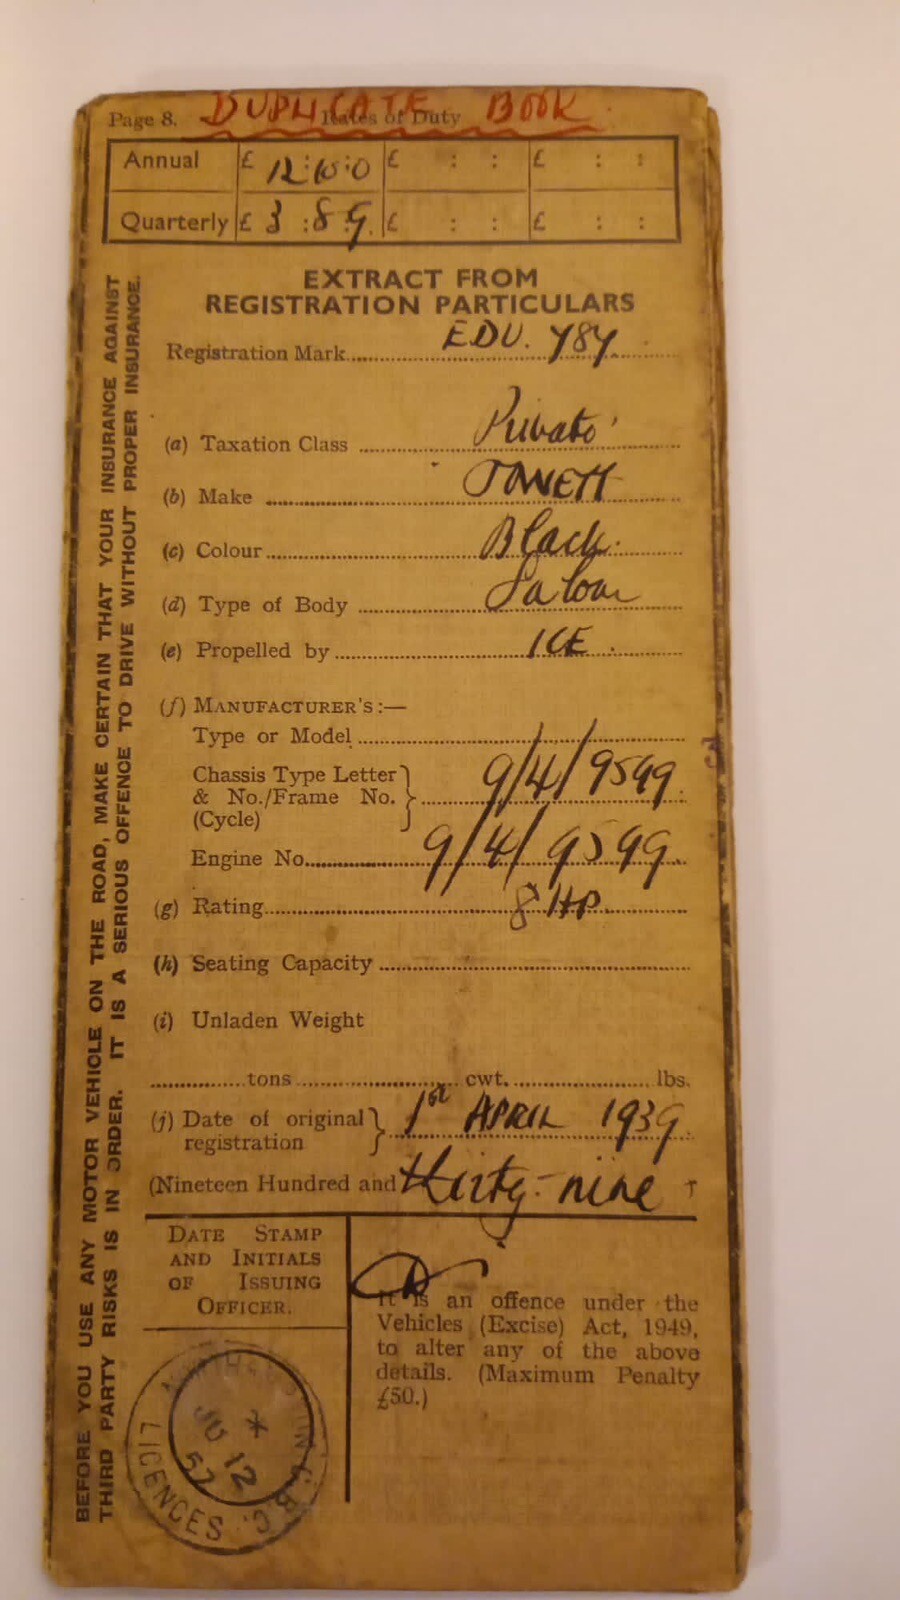 DUPLICATE BOOK
Page 8. Rates of Duty
Annual £ 12:10:0 £ : : £ : :
Quarterly £ 3:8:9. £ : : £ : :
EXTRACT FROM
REGISTRATION PARTICULARS
Registration Mark EDU. 787
(a) Taxation Class Private
(b) Make JOWETT
(c) Colour Black.
(d) Type of Body Saloon
(e) Propelled by ICE.
(f) MANUFACTURER'S:—
Type or Model
Chassis Type Letter
& No./Frame No. 9/4/9599
(Cycle)
Engine No. 9/4/9599.
(g) Rating 8 HP.
(h) Seating Capacity
(i) Unladen Weight
tons cwt. lbs.
(j) Date of original
registration 1st APRIL 1939
(Nineteen Hundred and thirty-nine
DATE STAMP
AND INITIALS
OF ISSUING
OFFICER.
It is an offence under the
Vehicles (Excise) Act, 1949,
to alter any of the above
details. (Maximum Penalty
£50.)
LICENCES
JU 12
57
BEFORE YOU USE ANY MOTOR VEHICLE ON THE ROAD, MAKE CERTAIN THAT YOUR INSURANCE AGAINST
THIRD PARTY RISKS IS IN ORDER. IT IS A SERIOUS OFFENCE TO DRIVE WITHOUT PROPER INSURANCE.